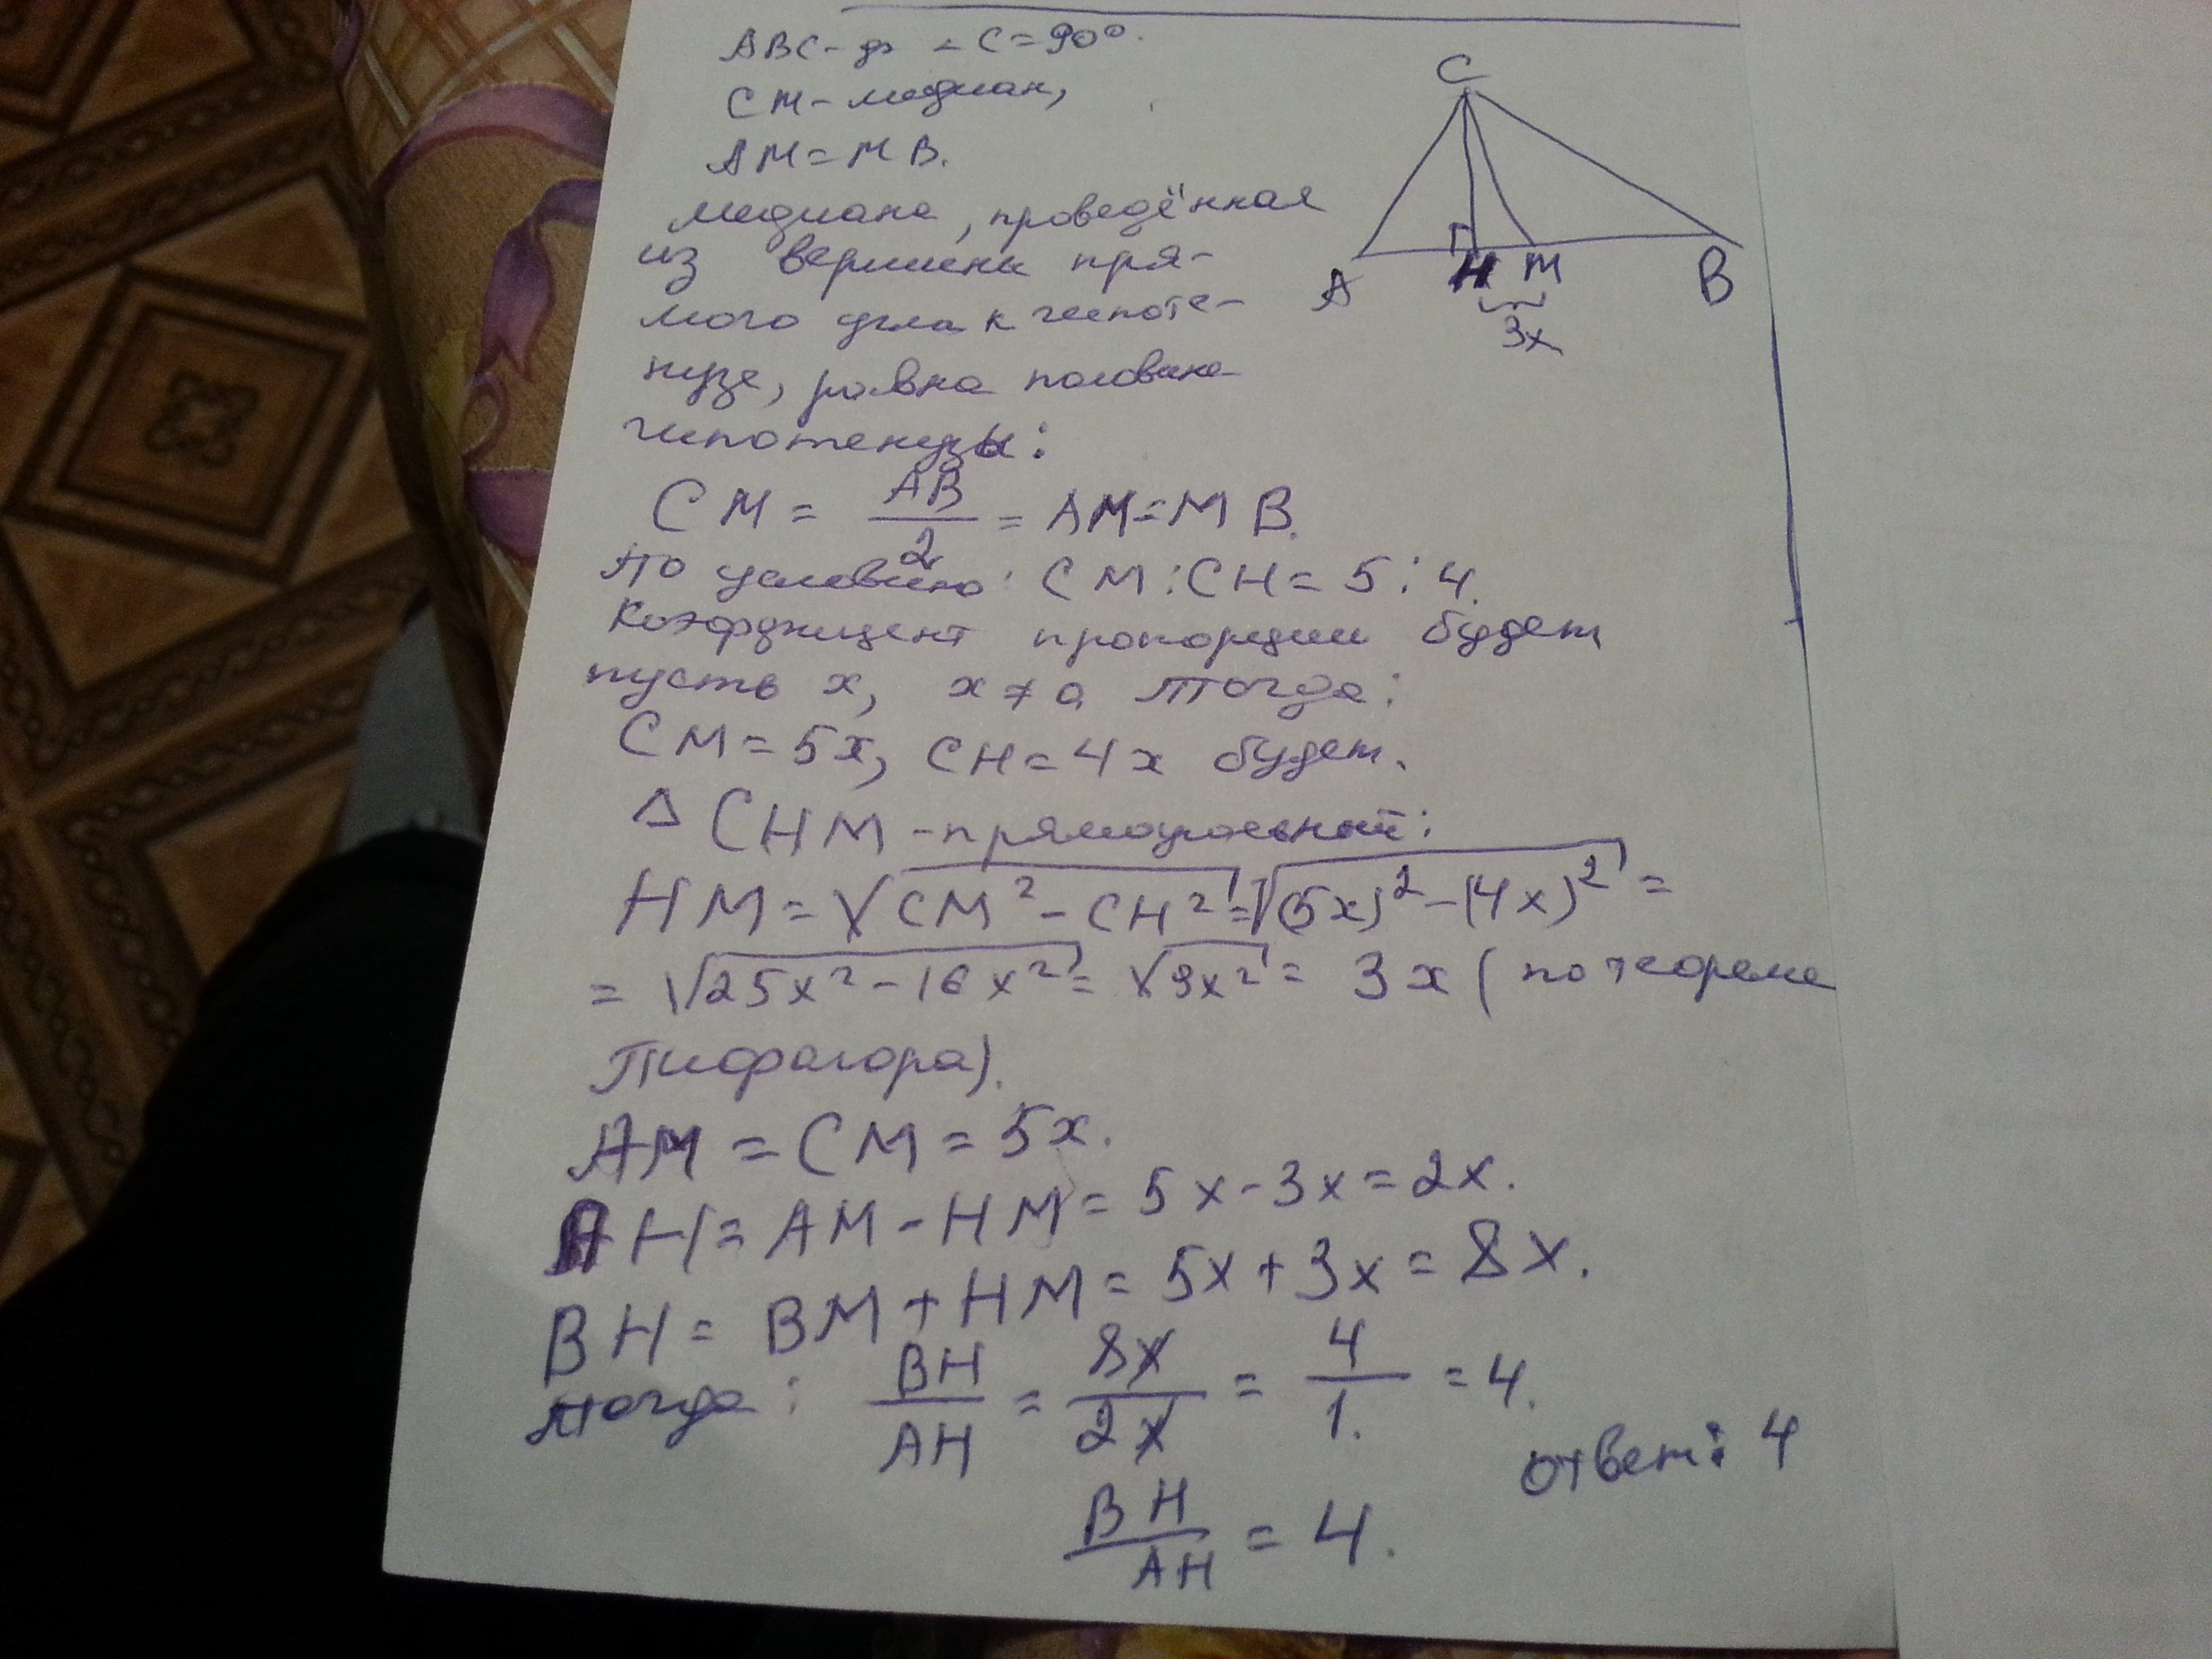 ABC - ∠C=90°.
CM - медиан,
AM = MB.
C
A H M B
3x
медиана, проведённая
из вершины пря-
мого угла к гипоте-
нузе, равна половине
гипотенузы:
CM = AB/2 = AM = MB.
По условию: CM : CH = 5 : 4.
Коэффициент пропорции будет
пусть x, x ≠ 0 тогда:
CM = 5x, CH = 4x будет.
Δ CHM - прямоугольный:
HM = √(CM² - CH²) = √((5x)² - (4x)²) =
= √(25x² - 16x²) = √(9x²) = 3x (по теореме
Пифагора).
AM = CM = 5x.
AH = AM - HM = 5x - 3x = 2x.
BH = BM + HM = 5x + 3x = 8x.
тогда: BH/AH = 8x/2x = 4/1 = 4.
ответ: 4
BH/AH = 4.